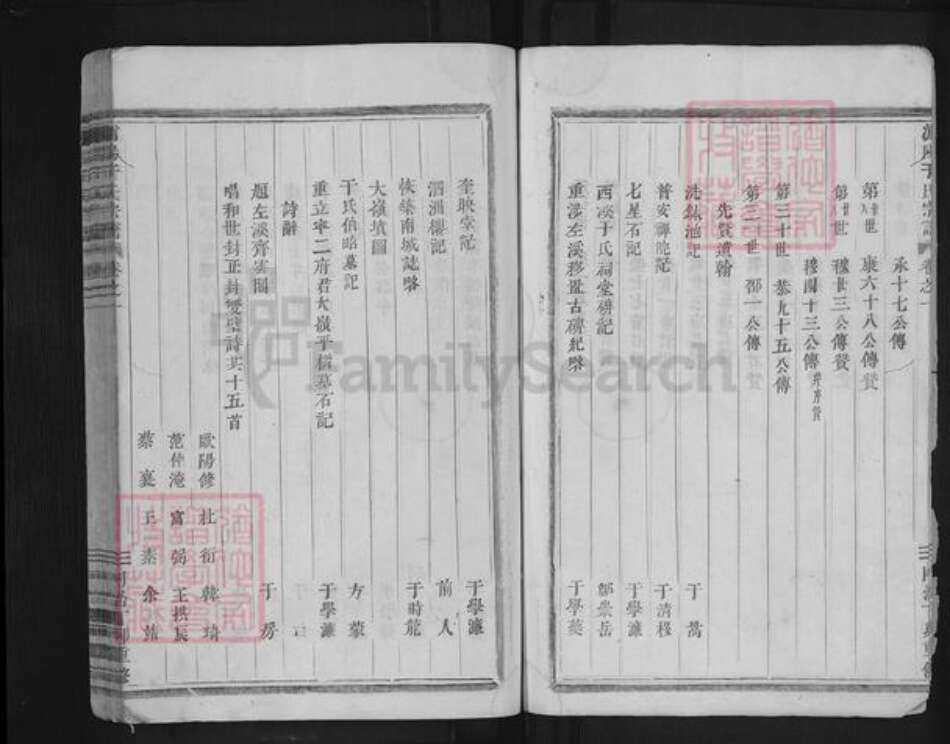 承十七公傳
第廿八世 康六十八公傳贊
第廿九世 穆世三公傳贊
穆四十三公傳并序贊
第三十世 恭九十五公傳
第三一世 邵一公傳
先賢遺翰
洗銶池記 于蒿
普安禪院記 于清穆
七星石記 于學濂
西溪于氏祠堂耕記 鄒崇岳
重涉左溪移置古碑紀略 于學夔
奎映堂記 于學濂
泗洲樓記 前人
恢築南城誌略 于時龍
大嶺墳圖
于氏伯昭墓記 方蒙
重立寧二府君大嶺平樻墓石記 于學濂
詩辭
題左溪齊雲閣 于房
唱和世封正封雙璧詩共十五首
歐陽修 杜衍 韓琦
范仲淹 富弼 王拱辰
蔡襄 王素 余靖
FamilySearch